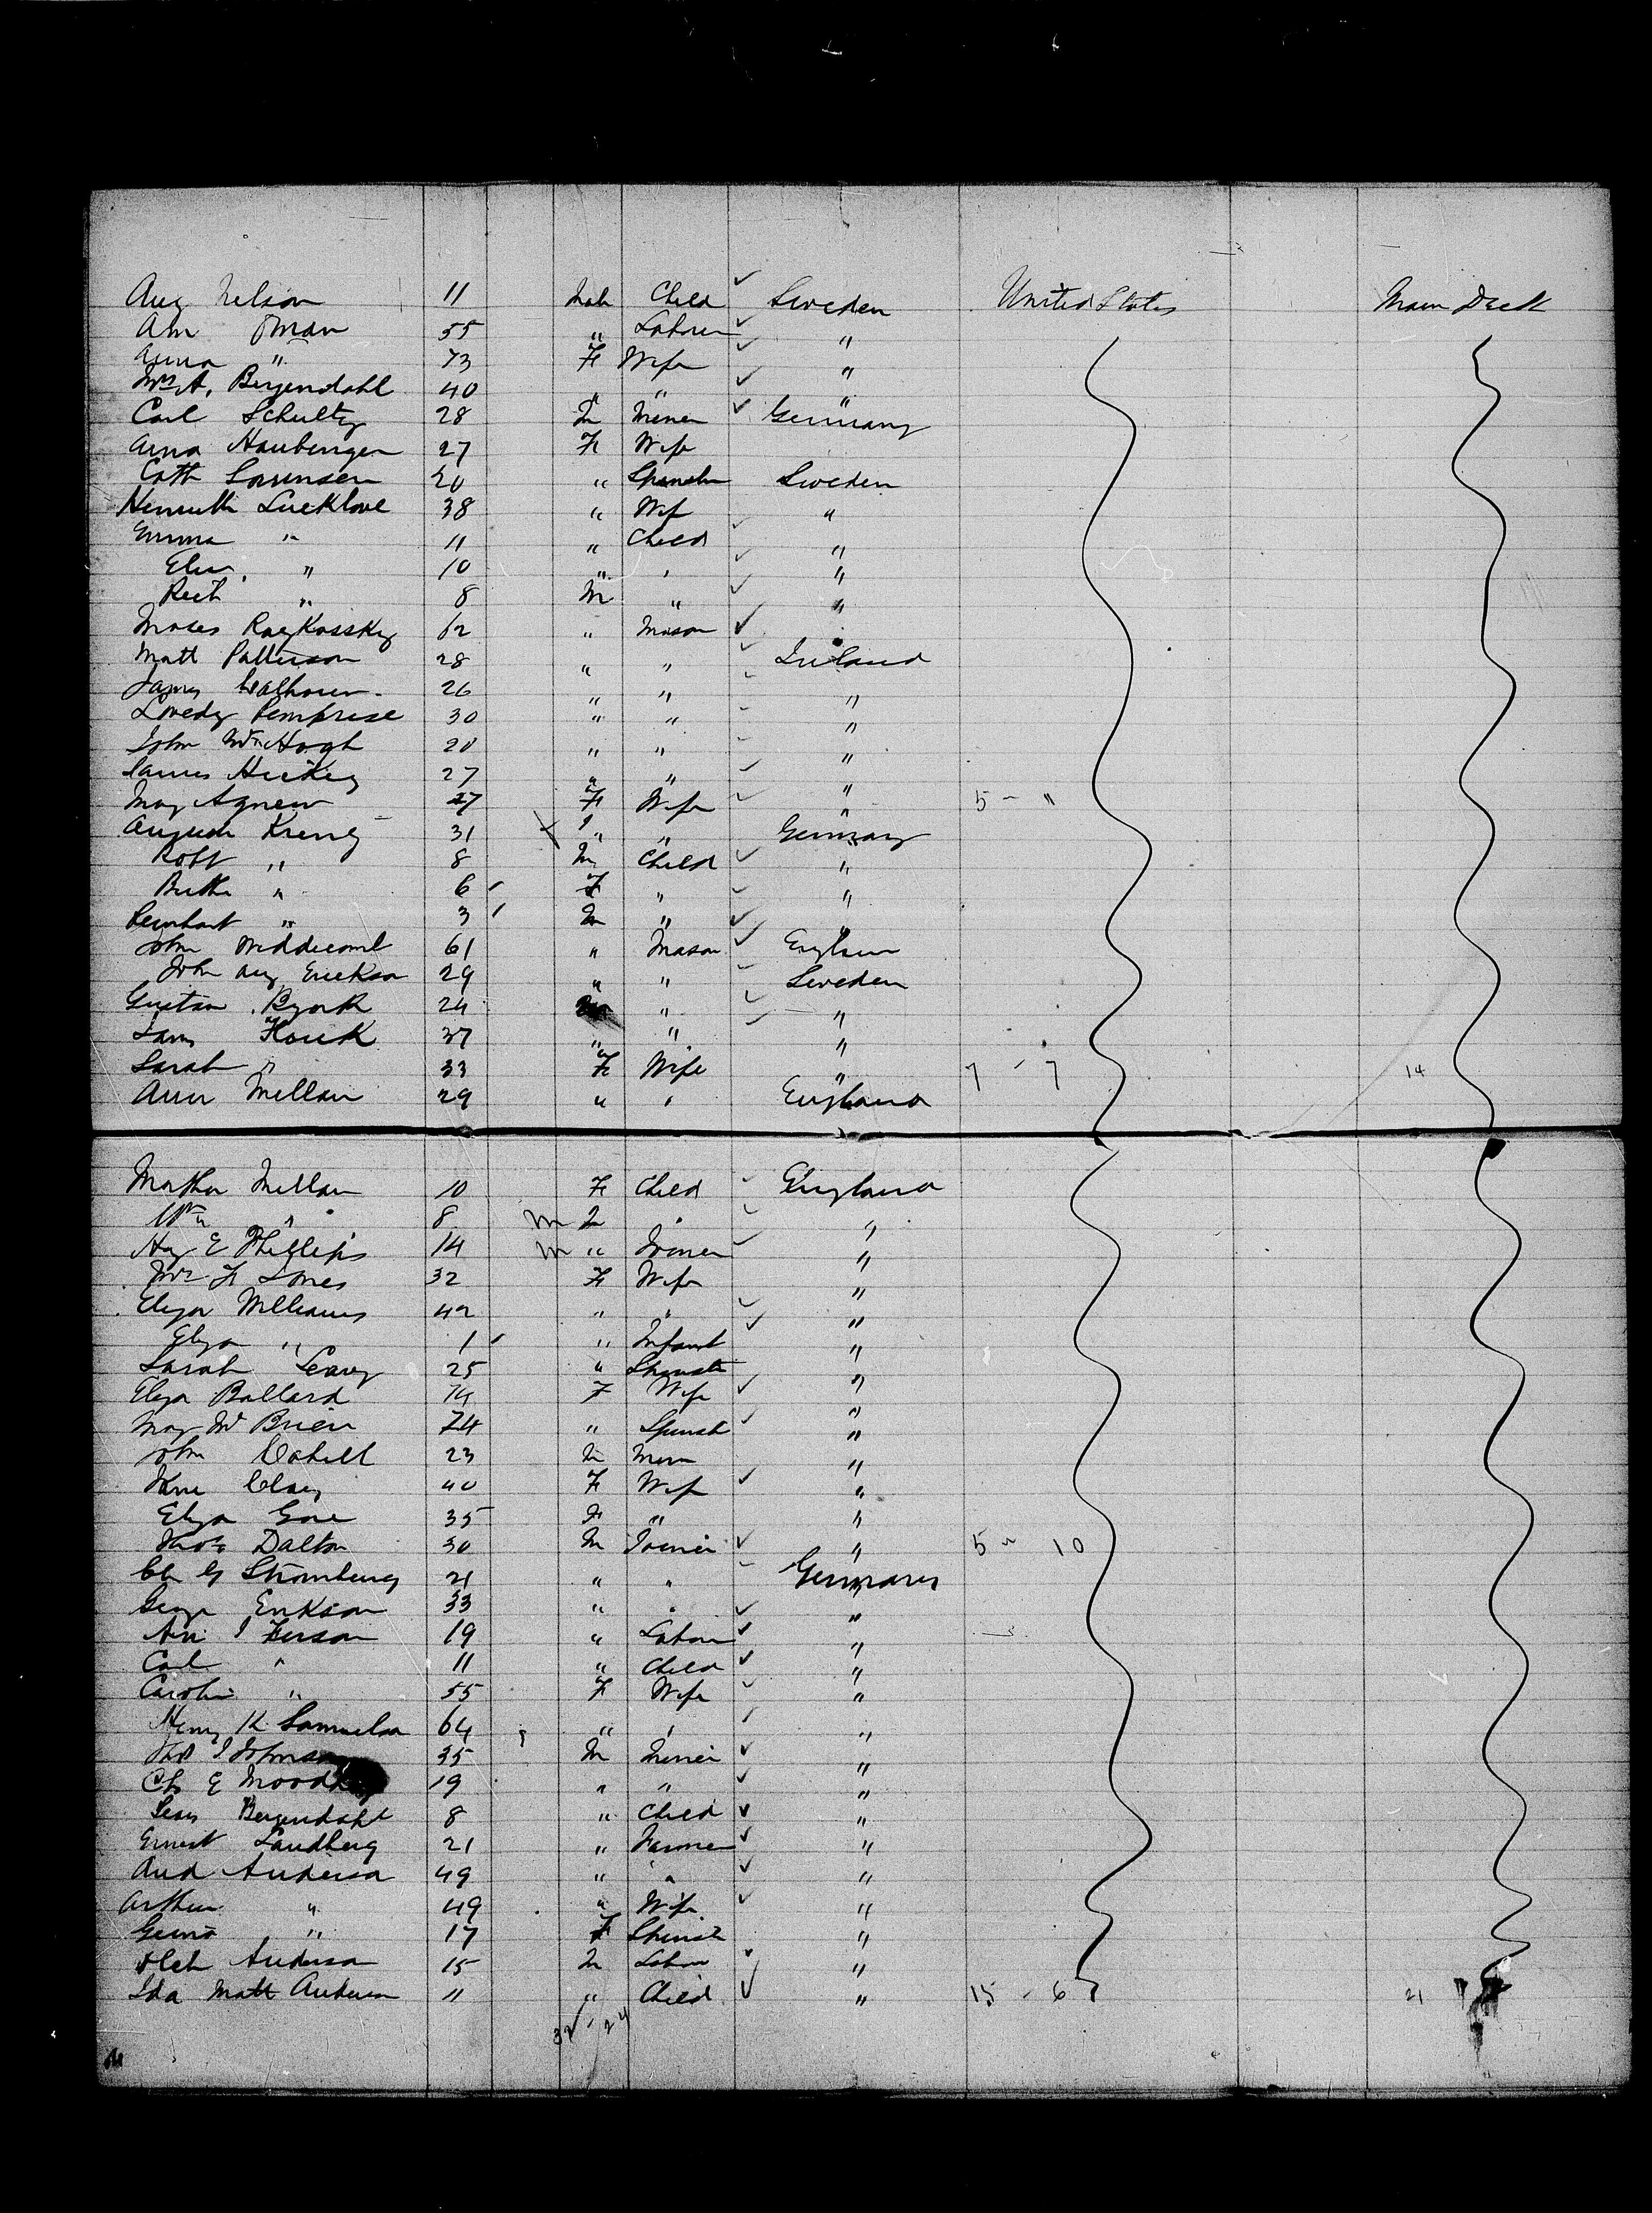 Aug Nelson 11 Male Child Sweden United States Main Deck
Am Oman 55 " Laborer "
Anna " 73 F Wife "
Mrs A. Bergendahl 40 " " "
Carl Schultz 28 M Miner Germany
Anna Hauberger 27 F Wife
Cath Sorensen 20 " Spinster Sweden
Lucklove 38 " Wife "
Emma " 11 " Child "
10 " " "
8 M " "
Moses 62 " Mason
Matt Patterson 28 " " Ireland
James Calhoun 26 " " "
Lovedy Pemprise 30 " " "
John McHugh 20 " " "
James Hickey 27 " " "
May Agnew 27 F Wife " 5 - "
31 " " Germany
Robt " 8 M Child "
6 F " "
3 M " "
John Middecomb 61 " Mason England
John Aug Erickson 29 " " Sweden
Gustav Byork 24 M " "
Houk 37 " " "
Sarah " 33 F Wife " 7 - 7 14
Ann Mellan 29 " " England
Martha Mellan 10 F Child England
Wm " 8 M M " "
Hy E Phillips 14 M " Joiner "
Mrs F Jones 32 F Wife "
Eliza Williams 42 " " "
Eliza " 1 " Infant "
Sarah Leavy 25 " Spinster "
Eliza Ballard 74 F Wife "
May McBrien 24 " Spinst "
John Cahill 23 M "
Jane Clary 40 F Wife "
Eliza Gore 35 F " "
Thos Dalton 30 M Joiner " 5 " 10
Ch G Stromberg 21 " " Germany
George Erikson 33 " " "
19 " Labour "
Carl " 11 " Child "
Carolin " 55 F Wife "
Henry K Samuelson 64 " " "
Thos J Johnson 35 M Miner "
Ch E 19 " " "
Bergendahl 8 " Child "
Ernest Landberg 21 " Farmer "
And Anderson 49 " " "
Arthur " 49 " Wife "
17 F Spinster "
Anderson 15 M Labour "
Ida Matt Anderson 11 " Child " 15 - 6 21 "
32 - 24